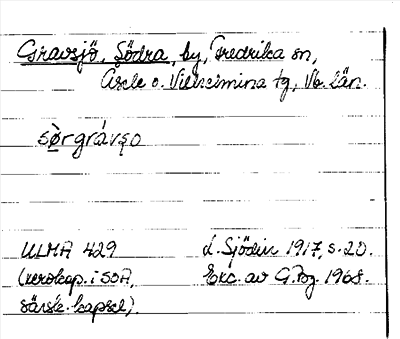 Gravsjö, Södra, by, Fredrika sn,
Åsele o. Vilhelmina tg, Vb. län.
sö̀rgrávsɔ
ULMA 429 L. Sjödin 1917, s. 20.
(xerokop. i SOA, Exc. av G. Pog. 1968.
särsk. kapsel).